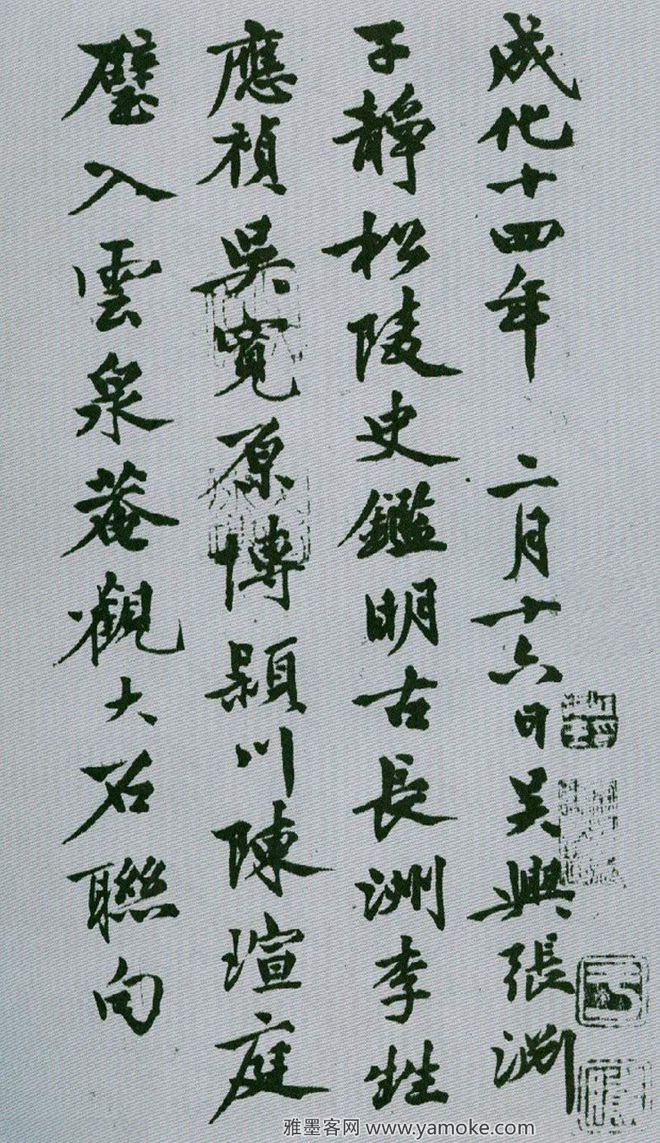 成化十四年 二月十六日吴興張渊
子靜松陵史鑑明古長洲李甡
應禎吴寬原博潁川陳瑄庭
璧入雲泉菴觀大石聯句
雅墨客网 www.yamoke.com